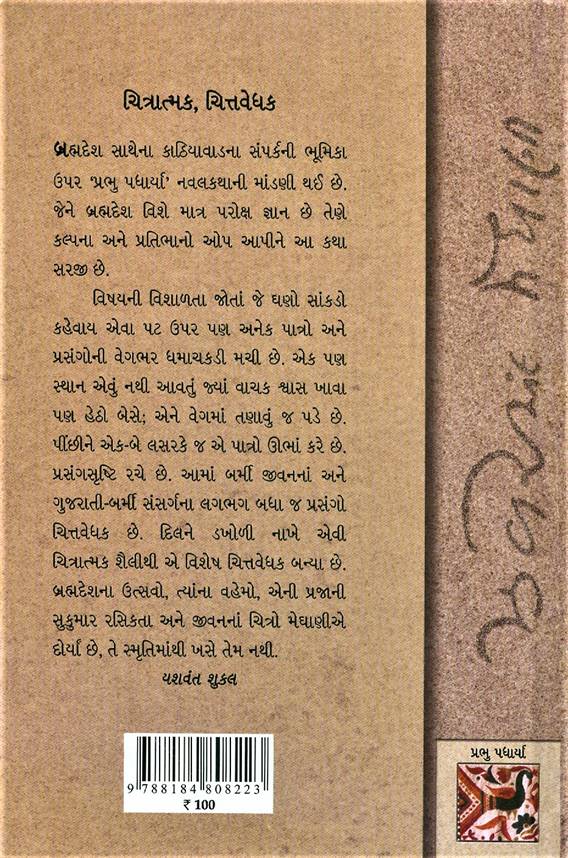 ચિત્રાત્મક, ચિત્તવેધક
બ્રહ્મદેશ સાથેના કાઠિયાવાડના સંપર્કની ભૂમિકા
ઉપર ‘પ્રભુ પધાર્યા’ નવલકથાની માંડણી થઈ છે.
જેને બ્રહ્મદેશ વિશે માત્ર પરોક્ષ જ્ઞાન છે તેણે
કલ્પના અને પ્રતિભાનો ઓપ આપીને આ કથા
સરજી છે.
વિષયની વિશાળતા જોતાં જે ઘણો સાંકડો
કહેવાય એવા પટ ઉપર પણ અનેક પાત્રો અને
પ્રસંગોની વેગભર ધમાચકડી મચી છે. એક પણ
સ્થાન એવું નથી આવતું જ્યાં વાચક શ્વાસ ખાવા
પણ હેઠો બેસે; એને વેગમાં તણાવું જ પડે છે.
પીંછીને એક-બે લસરકે જ એ પાત્રો ઊભાં કરે છે.
પ્રસંગસૃષ્ટિ રચે છે. આમાં બર્મી જીવનનાં અને
ગુજરાતી-બર્મી સંસર્ગના લગભગ બધા જ પ્રસંગો
ચિત્તવેધક છે. દિલને ડખોળી નાખે એવી
ચિત્રાત્મક શૈલીથી એ વિશેષ ચિત્તવેધક બન્યા છે.
બ્રહ્મદેશના ઉત્સવો, ત્યાંના વહેમો, એની પ્રજાની
સુકુમાર રસિકતા અને જીવનનાં ચિત્રો મેઘાણીએ
દોર્યાં છે, તે સ્મૃતિમાંથી ખસે તેમ નથી.
યશવંત શુક્લ
9 788184 808223
₹ 100
ઝવેરચંદ મેઘાણી
પ્રભુ પધાર્યા